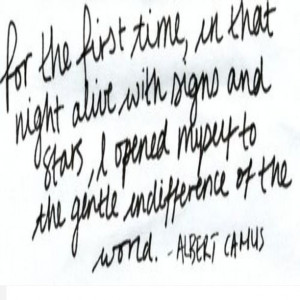 for the first time, in that
night alive with signs and
stars, I opened myself to
the gentle indifference of the
world. - ALBERT CAMUS